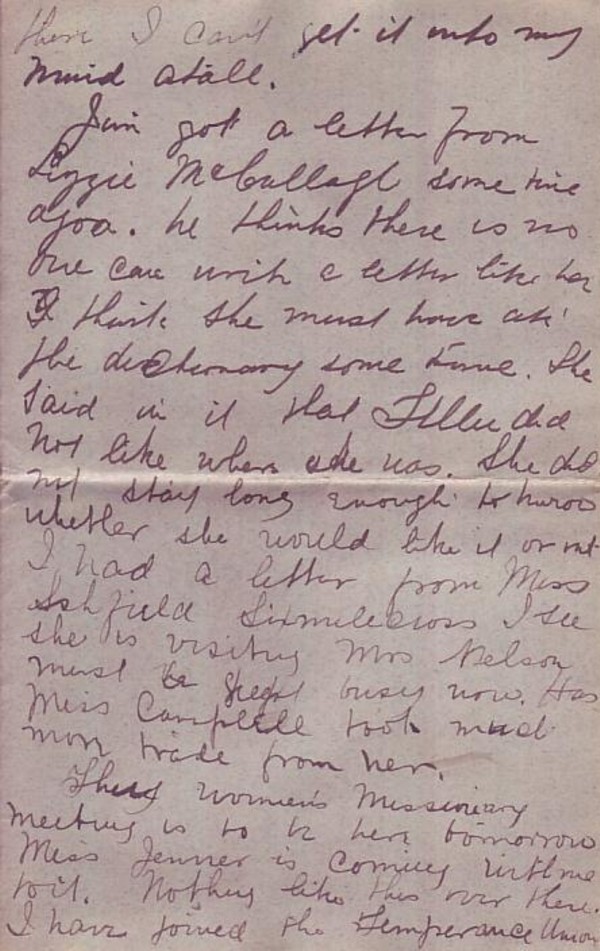 there I can't get it into my
mind atall.
Jim got a letter from
Lizzie McCullagh some time
agoa. he thinks there is no
one can write a letter like her
I think she must have ate
the dictionary some time. She
said in it that Tillie did
not like where she was. She did
not stay long enough to know
whether she would like it or not
I had a letter from Miss
Ashfield Sixmilecross I see
she is visiting Mrs Nelson
must be busy now. Has
Miss Campbell took much
more trade from her.
The Women's Missionary
meeting is to be here tomorrow
Miss Jenner is coming with me
to it. Nothing like this over there.
I have joined the Temperance Union